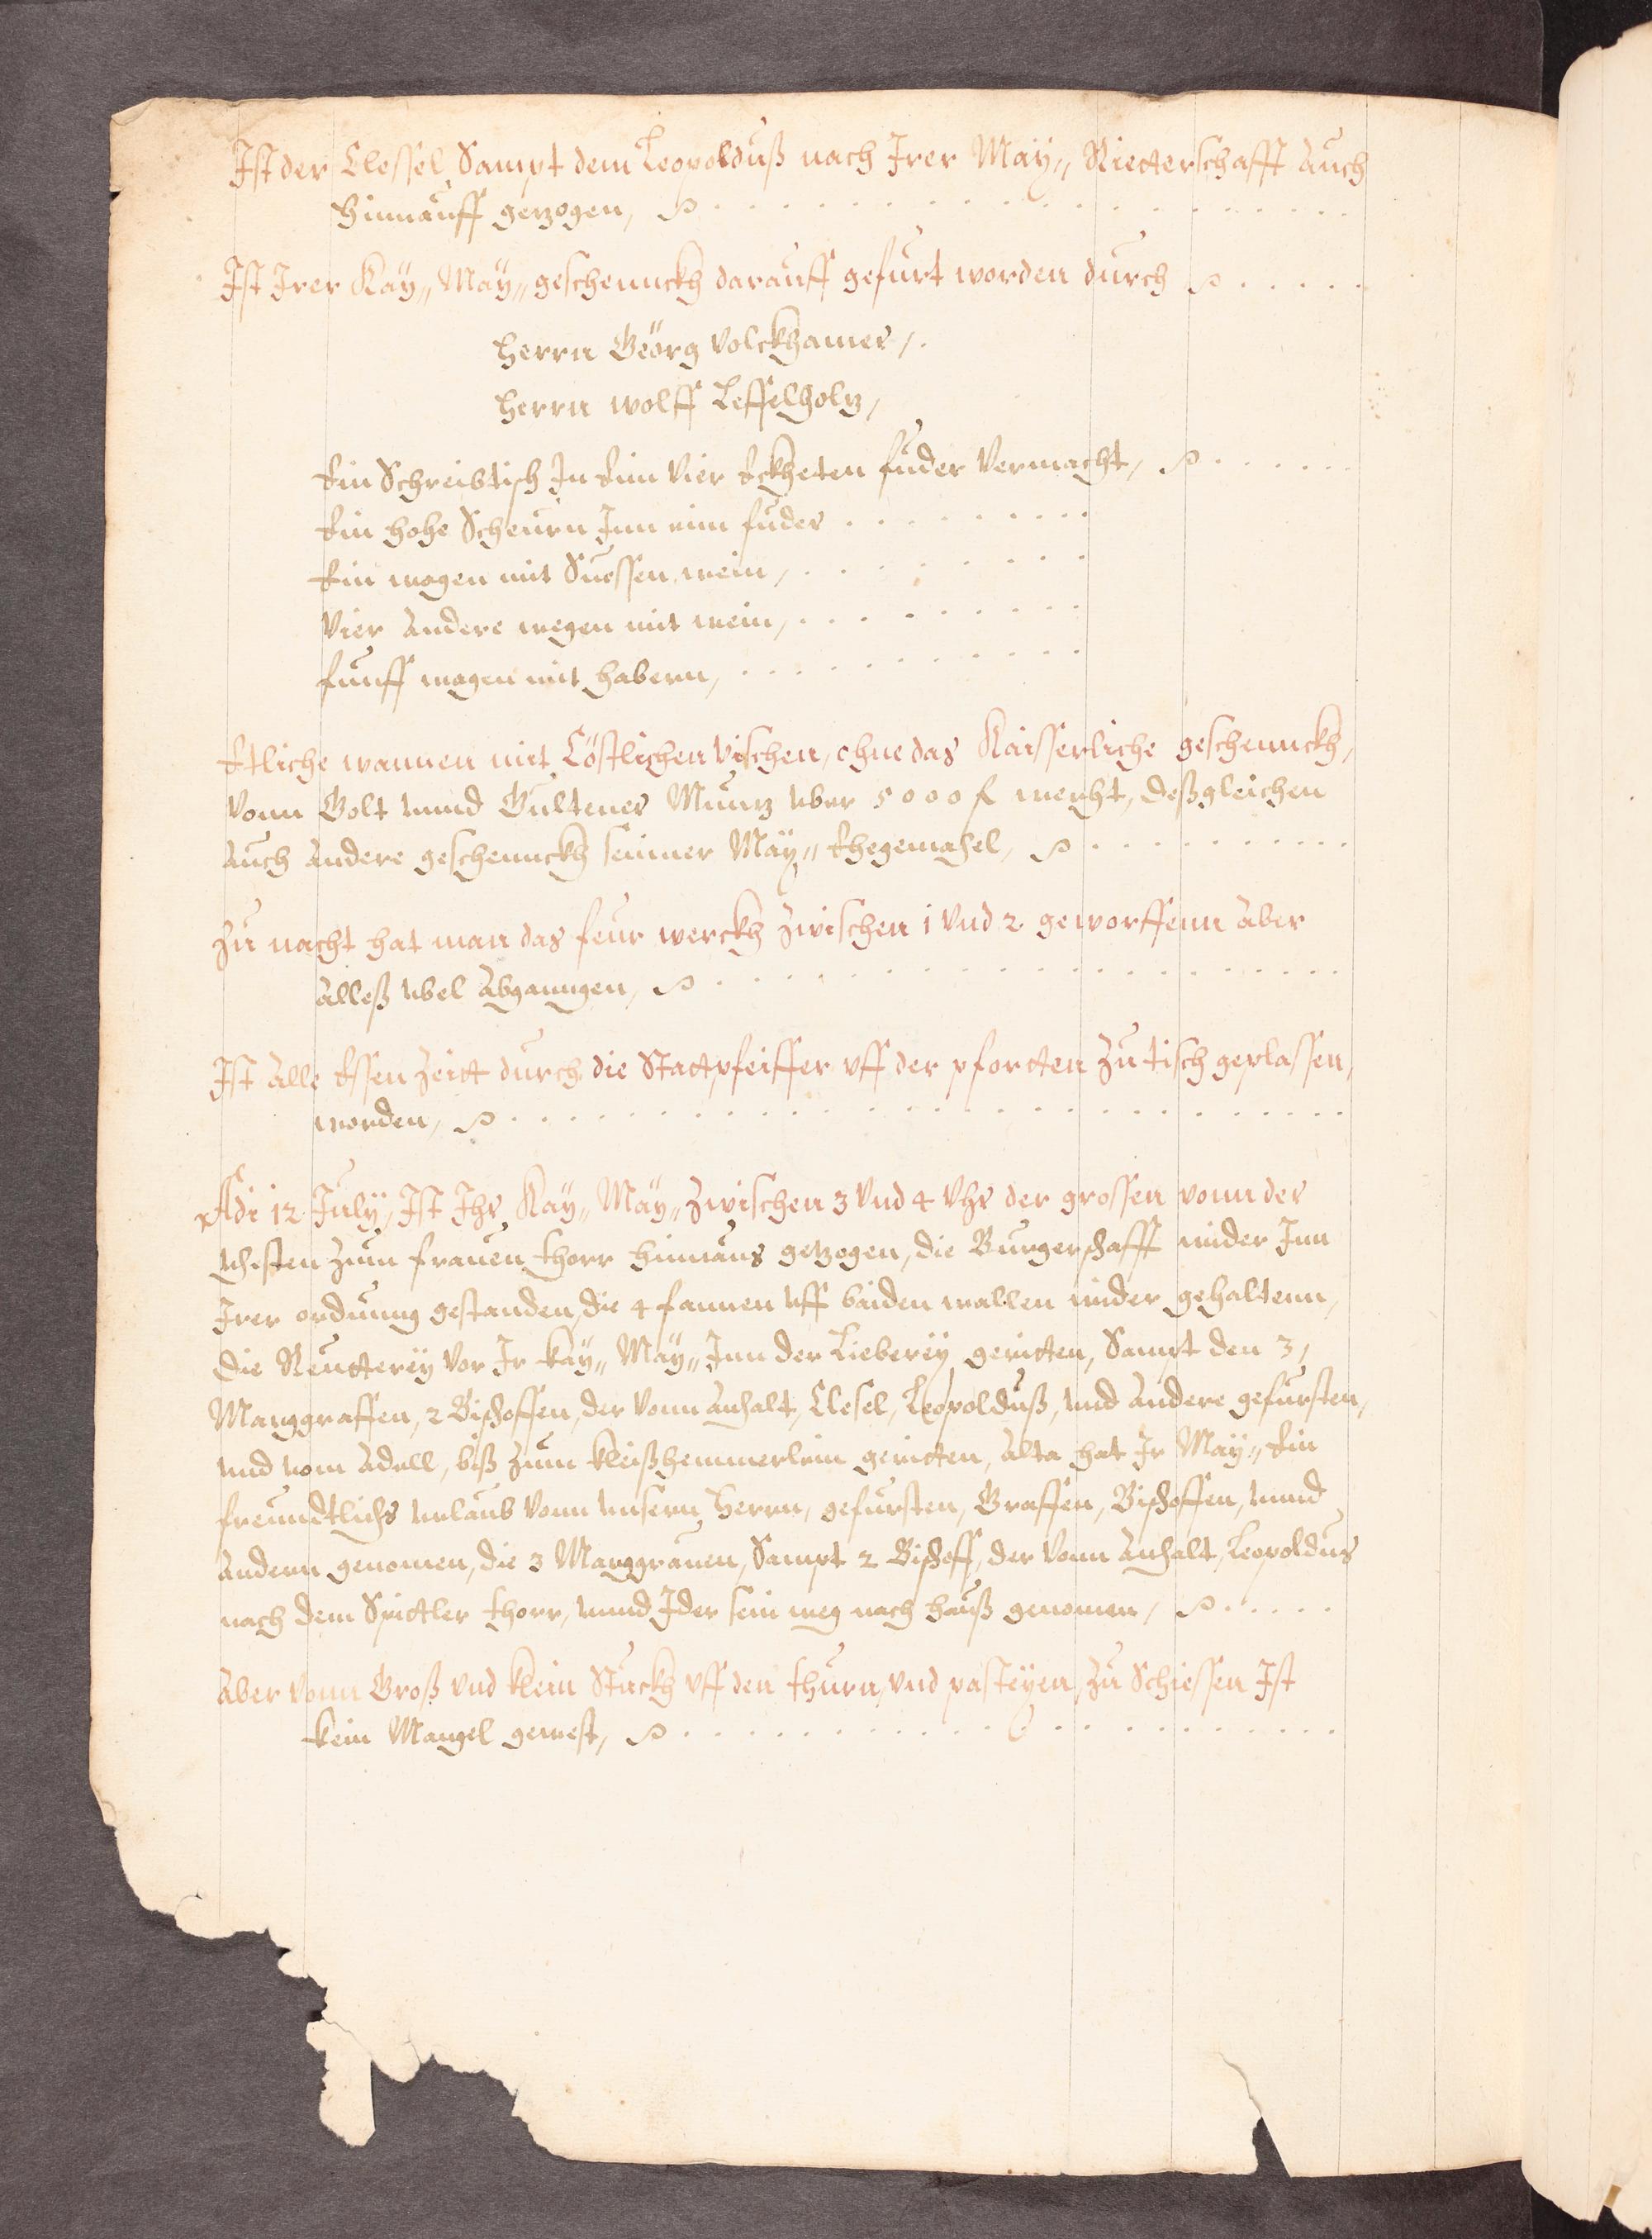 Ist der Clessel Sampt dem Leopolduß nach Irer Maÿ„ Rietterschafft Auch
hinnauff gezogen, ...
Ist Irer Kaÿ„ Maÿ„ geschennckh darauff gefurt worden durch ...
Herrn Geörg Volckhamer,
Herrn Wolff Leffelholtz,
Ein Schreibtisch In Eim Vier Eckheten fuder Vermacht, ...
Ein hohe Scheurn Inn eim fuder ...
Ein wagen mit Suessen wein, ...
Vier Andere wegen mit wein, ...
funff wagen mit habern, ...
Etliche wannen mit Cöstlichen Vischen, ohne das Kaisserliche geschennckh,
Vonn Golt unnd Gultener Muntz uber 5000 f werht, deßgleichen
Auch Andere geschennckh seinner Maÿ„ Ehegemahel, ...
Zu nacht hat man das feur werckh Zwischen 1 Vnd 2 geworffenn Aber
Alleß ubel Abganngen, ...
Ist Alle Essen Zeitt durch die Stattpfeiffer vff der pfortten Zu tisch geplassen,
worden, ...
Adi 12 Julÿ, Ist Ihr Kaÿ„ Maÿ„ Zwischen 3 Vnd 4 Vhr der grossen vonn der
Vhesten Zum frauen thorr hinnaus getzogen, die Burgerschafft wider Inn
Irer ordnung gestanden, die 4 fannen uff beiden wallen wider gehaltenn,
die Reutterëÿ Vor Ir Kaÿ„ Maÿ„ Inn der Lieberëÿ geritten, Sampt den 3,
Marggraffen, 2 Bischoffen, der Vonn Anhalt, Clesel, Leopolduß, und Andere gefursten,
und vom Adell, biß Zum Kleißhemmerlein geritten, Alta hat Ir Maÿ„ Ein
freundtlichs urlaub Vonn unsern Herrn, gefursten, Graffen, Bischoffen, unnd
Andern genomen, die 3 Marggrauen, Sampt 2 Bischoff, der Vonn Anhalt, Leopoldus
nach dem Spittler thorr, unnd Ider sein weg nach hauß genomen, ...
Aber Vonn Groß Vnd klein Stuckh vff den thurn, Vnd pasteÿen, Zu Schiessen Ist
kein Mangel gewest, ...